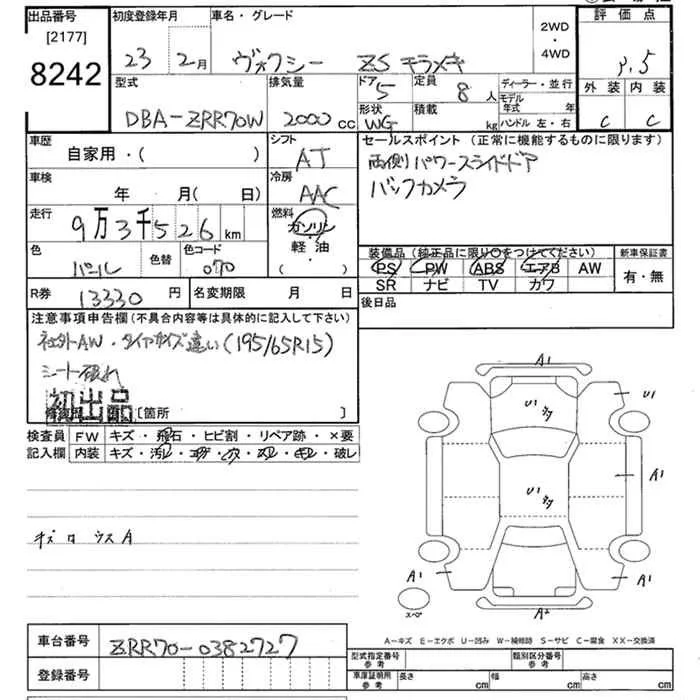 出品番号 初度登録年月 車名・グレード 2WD・4WD 評価点
[2177]
8242
23 2月 ヴォクシー ZS キラメキ
型式 排気量 ドア 定員 ディーラー・並行 外装 内装
DBA-ZRR70W 2000cc 5 8人 モデル年式 年 C C
形状 積載 ハンドル 左・右
WG kg
車歴 シフト セールスポイント(正常に機能するものに限ります)
自家用・( ) AT 両側パワースライドドア
車検 冷房 バックカメラ
年 月(日) AAC
走行 燃料
9万3千526km ガソリン・軽油
( )
色 色替 色コード 装備品(純正品に限り○をつけてください) 新車保証書
パール 070 PS PW ABS エアB AW 有・無
SR ナビ TV カワ
R券 13330円 名変期限 月 日 後日品
注意事項申告欄(不具合内容等は具体的に記入して下さい)
社外AW・タイヤサイズ違い(195/65R15)
シート破れ
初出品
[箇所 ]
検査員記入欄 FW キズ・飛石・ヒビ割・リペア跡・×要
内装 キズ・汚レ・コゲ・穴・スレ・キレ・破レ
キズ ウス A
A1
U1
U1
A1
U1
A1
A1
A2
スペア
A-キズ E-エクボ U-凹み W-補修跡 S-サビ C-腐食 XX-交換済
車台番号 ZRR70-0382727
登録番号
型式指定番号 参考 類別区分番号 参考
車庫証明用 参考 長さ cm 幅 cm 高さ cm